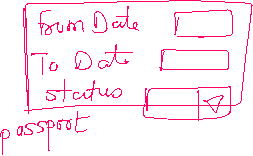 from Date
To Dat
status
passport